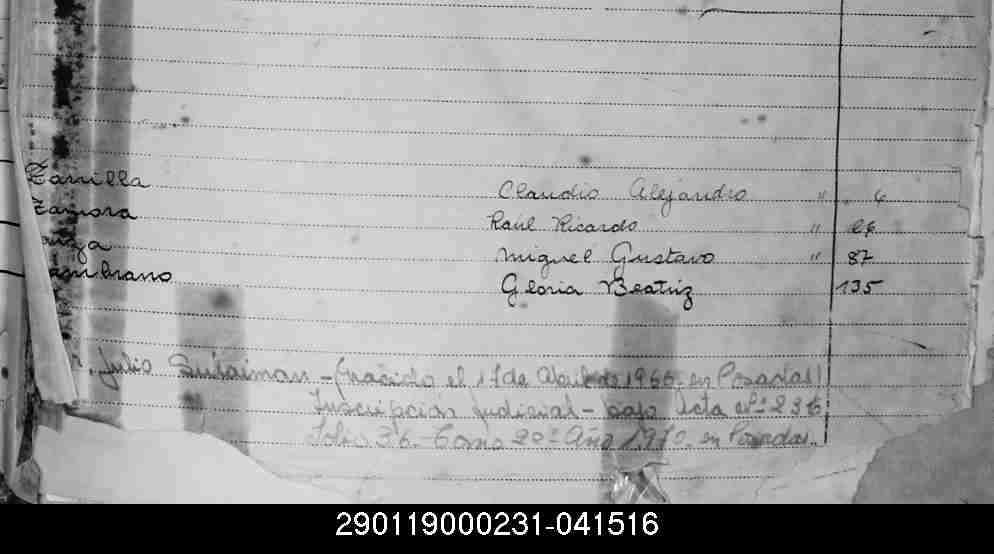 Zarrilla Claudio Alejandro " " 6
Zamora Raúl Ricardo " 26
Miguel Gustavo " 87
Zambrano Gloria Beatriz 135
Julio Sulaiman - (nacido el 17 de Abril de 1966 en Posadas)
Inscripción judicial - bajo Acta nº 236
Folio 36 - Tomo 20º Año 1970 en Posadas.
290119000231-041516